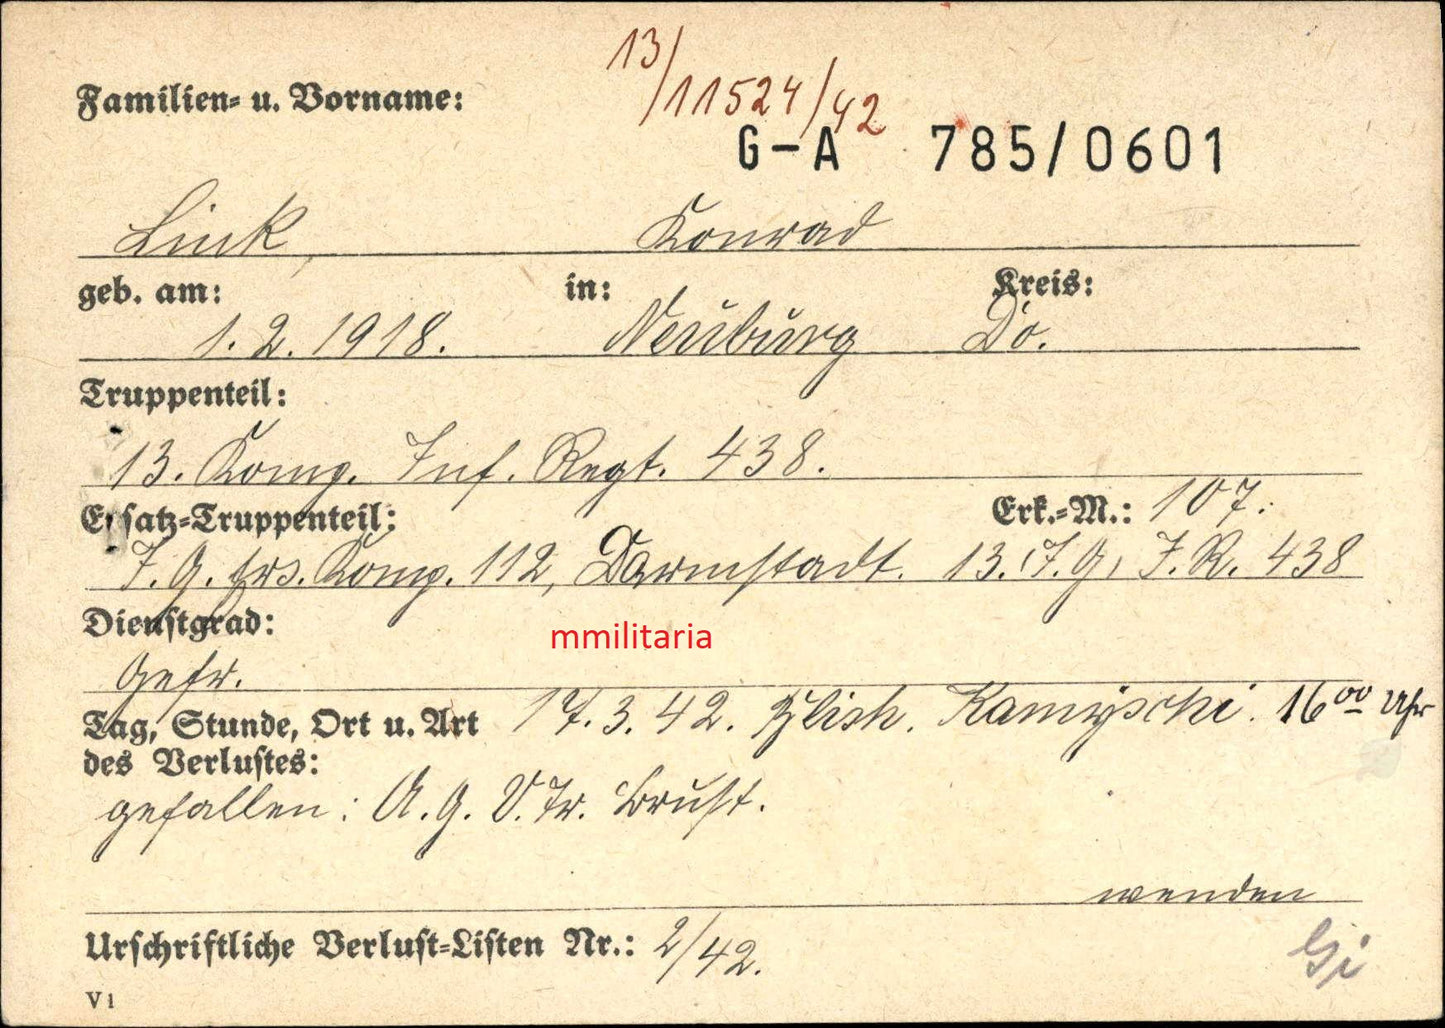 13/11524/42
Familien- u. Vorname:
G-A 785/0601
Link, Konrad
geb. am: in: Kreis:
1. 2. 1918. Neuburg Do.
Truppenteil:
13. Komp. Inf. Regt. 438.
Ersatz-Truppenteil: Erk.-M.: 107.
J. G. Ers. Komp. 112, Darmstadt. 13. (J. G. J. R. 438
Dienstgrad:
mmilitaria
Gefr.
Tag, Stunde, Ort u. Art 17. 3. 42. Kamyschi. 16⁰⁰ Uhr
des Verlustes:
gefallen: A. G. Brust.
wenden
Urschriftliche Verlust-Listen Nr.: 2/42.
V1